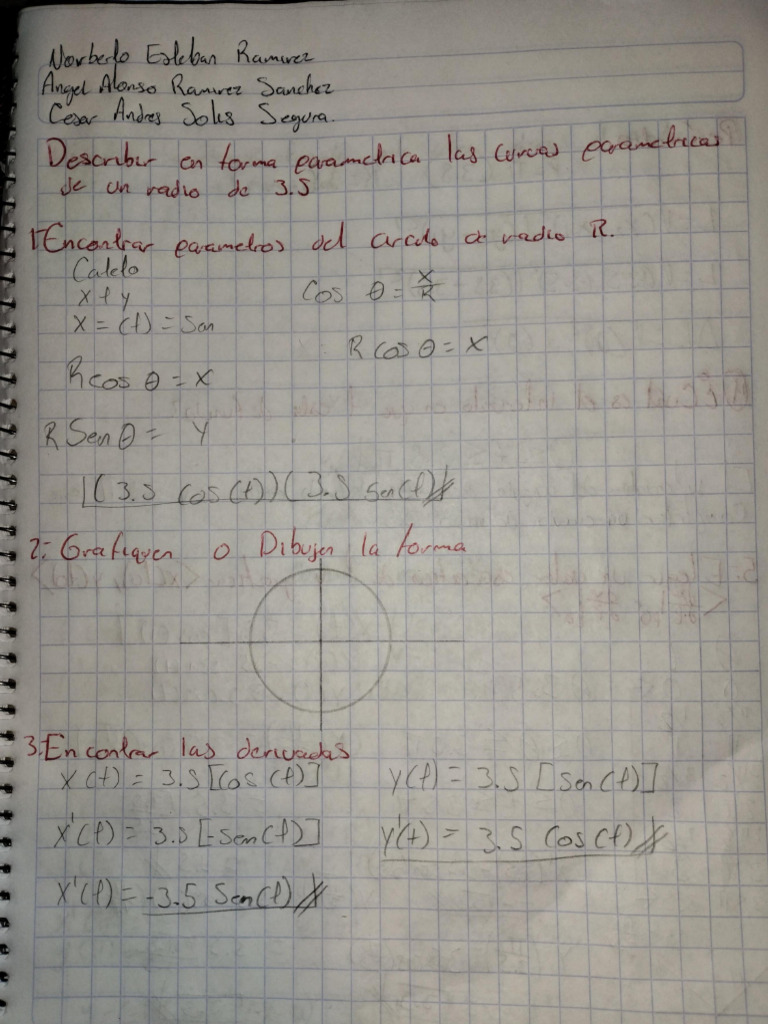 Norberto Esteban Ramirez
Angel Alonso Ramirez Sanchez
Cesar Andres Solis Segura.
Describir en forma parametrica las curvas parametricas
de un radio de 3.5
1. Encontrar parametros del circulo de radio R.
x + y
Cos θ = x/R
x = (t) = Son
R cos θ = x
R cos θ = x
R Sen θ = y
(3.5 cos(t))(3.5 sen(t))
2.- Grafiquen o Dibujen la forma
3. Encontrar las derivadas
x(t) = 3.5 [cos(t)]
y(t) = 3.5 [sen(t)]
x'(t) = 3.5 [-sen(t)]
y'(t) = 3.5 cos(t)
x'(t) = -3.5 Sen(t)